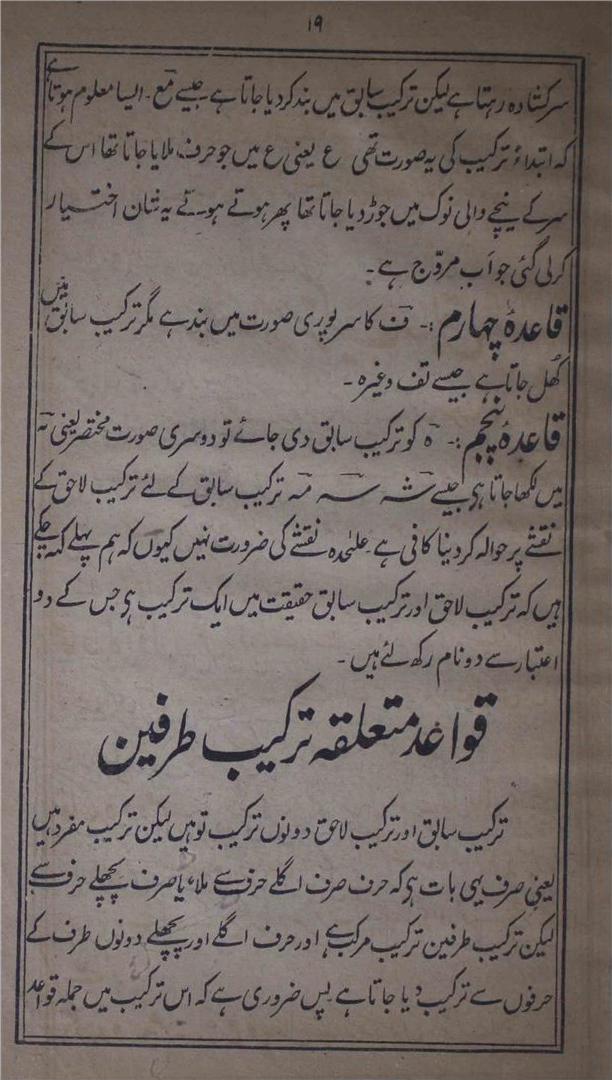 ۱۹
سر کشادہ رہتا ہے لیکن ترکیب سابق میں بند کردیا جاتا ہے جیسے مع۔ ایسا معلوم ہوتا ہے
کہ ابتداءً ترکیب کی یہ صورت تھی ع یعنی ع میں جو حرف ملایا جاتا تھا اس کے
سر کے نیچے والی نوک میں جوڑ دیا جاتا تھا پھر ہوتے ہوتے یہ شان اختیار
کرلی گئی جو اب مروّج ہے۔
قاعدہٴ چہارم :۔ ف کا سر پوری صورت میں بند ہے مگر ترکیب سابق میں
کھل جاتا ہے جیسے تف وغیرہ۔
قاعدہٴ پنجم :۔ ہ کو ترکیب سابق دی جائے تو دوسری صورت مختصر یعنی ـہ
میں لکھا جاتا ہی جیسے شہ سہ مہ ترکیب سابق کے لئے ترکیب لاحق کے
نقشے پر حوالہ کردینا کافی ہے۔ علیٰحدہ نقشے کی ضرورت نہیں کیوں کہ ہم پہلے کہہ چکے
ہیں کہ ترکیب لاحق اور ترکیب سابق حقیقت میں ایک ترکیب ہی جس کے دو
اعتبار سے دو نام رکھ لئے ہیں۔
قواعد متعلقہ ترکیب طرفین
ترکیب سابق اور ترکیب لاحق دونوں ترکیب تو ہیں لیکن ترکیب مفرد ہیں
یعنی صرف یہی بات ہی کہ حرف صرف اگلے حرف سے ملا، یا صرف پچھلے حرف سے
لیکن ترکیب طرفین ترکیب مرکب ہے اور حرف اگلے اور پچھلے دونوں طرف کے
حرفوں سے ترکیب دیا جاتا ہے پس ضروری ہے کہ اس ترکیب میں جملہ قواعد